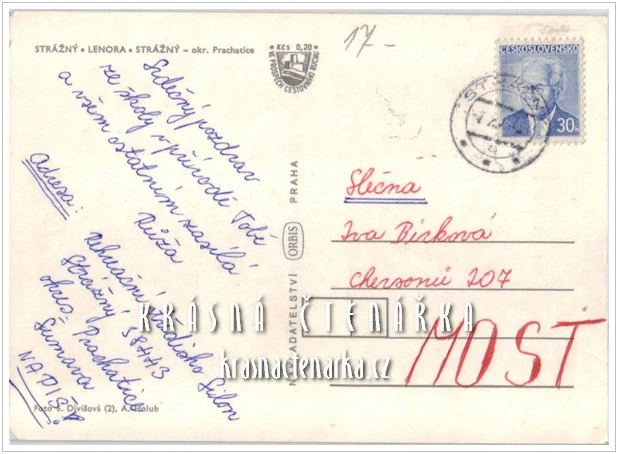 STRÁŽNÝ • LENORA • STRÁŽNÝ – okr. Prachatice
Kčs 0,20
17-
ČESKOSLOVENSKO
30h
Srdečný pozdrav
ze školy v přírodě Tobě
a všem ostatním zasílá
Růža
Adresa:
Rekreační středisko Silon
Strážný 38443
okres: Prachatice
Šumava
NAPIŠ!
Slečna
Iva Birková
Chersonů 207
MOST
NAKLADATELSTVÍ ORBIS PRAHA
KRÁSNÁ ČTENÁŘKA
krasnactenarka.cz
Foto S. Divišová (2), A. Holub